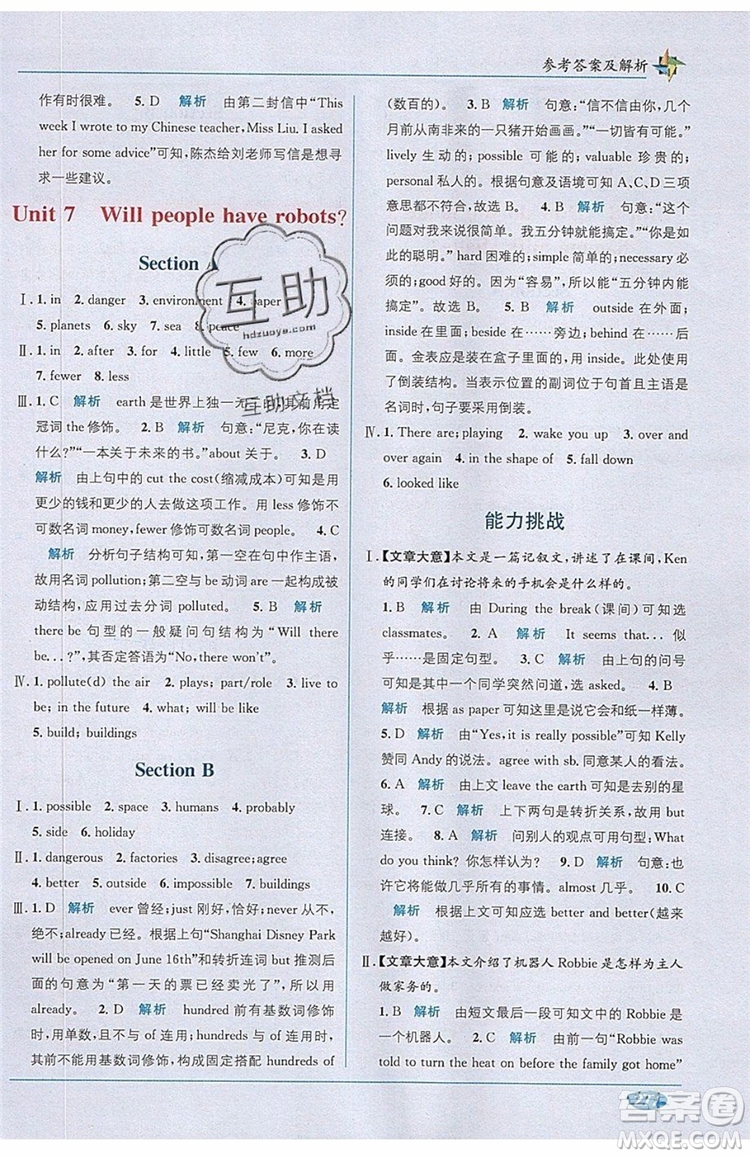 参考答案及解析
作有时很难。 5. D 解析 由第二封信中“This
week I wrote to my Chinese teacher, Miss Liu. I asked
her for some advice”可知,陈杰给刘老师写信是想寻
求一些建议。
Unit 7 Will people have robots?
Section A
Ⅰ. 1. in 2. danger 3. environment 4. paper
5. planets 6. sky 7. sea 8. peace
Ⅱ. 1. in 2. after 3. for 4. little 5. few 6. more
7. fewer 8. less
Ⅲ. 1. C 解析 earth是世界上独一无二的,其前用定
冠词the修饰。 2. B 解析 句意:“尼克,你在读
什么?”“一本关于未来的书。”about关于。 3. D
解析 由上句中的cut the cost(缩减成本)可知是用
更少的钱和更少的人去做这项工作。用less修饰不
可数名词money, fewer修饰可数名词people。 4. C
解析 分析句子结构可知,第一空在句中作主语,
故用名词pollution;第二空与be动词are一起构成被
动语态,故应用过去分词polluted。 5. B 解析
there be句型的一般疑问句结构为“Will there
be...?”,其否定答语为“No, there won't”。
Ⅳ. 1. pollute(d) the air 2. plays; part 3. will be;
in the future 4. what; will be like
5. build; buildings
Section B
Ⅰ. 1. possible 2. space 3. humans 4. probably
5. side 6. holiday
Ⅱ. 1. dangerous 2. factories 3. disagree; agree
4. better 5. outside 6. impossible 7. buildings
Ⅲ. 1. D 解析 ever曾经;just刚好,恰好;never从不,
绝不;already已经。根据上句“Shanghai Disney Park
will be opened on June 16th”和转折连词but可知,后
面的句意为“第一天的票已经卖光了”,故用
already。 2. D 解析 hundred前有基数词修饰
时,用单数,且不与of连用;hundreds与of连用时,
其前不能用基数词修饰,构成固定搭配hundreds of
(数百的)。 3. B 解析 句意:“信不信由你,几个
月前从南非来的一只猪开始画画。”“一切皆有可能。”
lively生动的;possible可能的;valuable珍贵的;
personal私人的。根据句意及语境可知A、C、D三项
意思都不符合,故选B。 4. B 解析 句意:“这个
问题对我来说很简单。我五分钟内就能搞定。”“你
如此的聪明。”hard困难的;simple简单的;necessary
必须的;good好的。因为“容易”,所以“五分钟内能
搞定”。故选B。 5. B 解析 outside在外面;
inside在里面;beside在……旁边;behind在……后
面。金表应是装在盒子里面的,故用inside。此处使
用了倒装结构。当表示方位的副词位于句首且主语是
名词时,句子要采用倒装。
Ⅳ. 1. There are; playing 2. wake you up 3. are
able to 4. in the shape of 5. fall down
6. looked like
能力挑战
Ⅰ.【文章大意】本文是一篇记叙文,讲述了在课间,Ken
的同学们在讨论将来的手机会是什么样的。
1. B 解析 由During the break(课间)可知选
classmates。 2. D 解析 It seems that... 似
乎……,是固定句型。 3. C 解析 由上句的问号
可知此处是一个同学突然问道,选asked。 4. B
解析 根据as paper可知这里是说它会和纸一样薄。
5. D 解析 由“Yes, it is really thin”可知Kelly
赞同Andy的说法。agree with sb. 同意某人的看法。
6. A 解析 由上文leave earth可知是去别的星
球。 7. C 解析 上下两句是转折关系,故用but
连接。 8. A 解析 问别人的观点可用句型:What
do you think? 你怎么认为? 9. D 解析 句意:也
许它将能做几乎所有的事情。almost几乎。 10. C
解析 根据上文可知应选better and better(越来
越好)。
Ⅱ.【文章大意】本文介绍了机器人Robbie是怎样为主人
做家务的。
1. B 解析 由短文最后一段可知文中的Robbie
是一个机器人。 2. C 解析 由第一句“Robbie was
told to turn the heat on before the family got home”
互助
hdzuoye.com
互助文档
答案圈
MXQE.COM